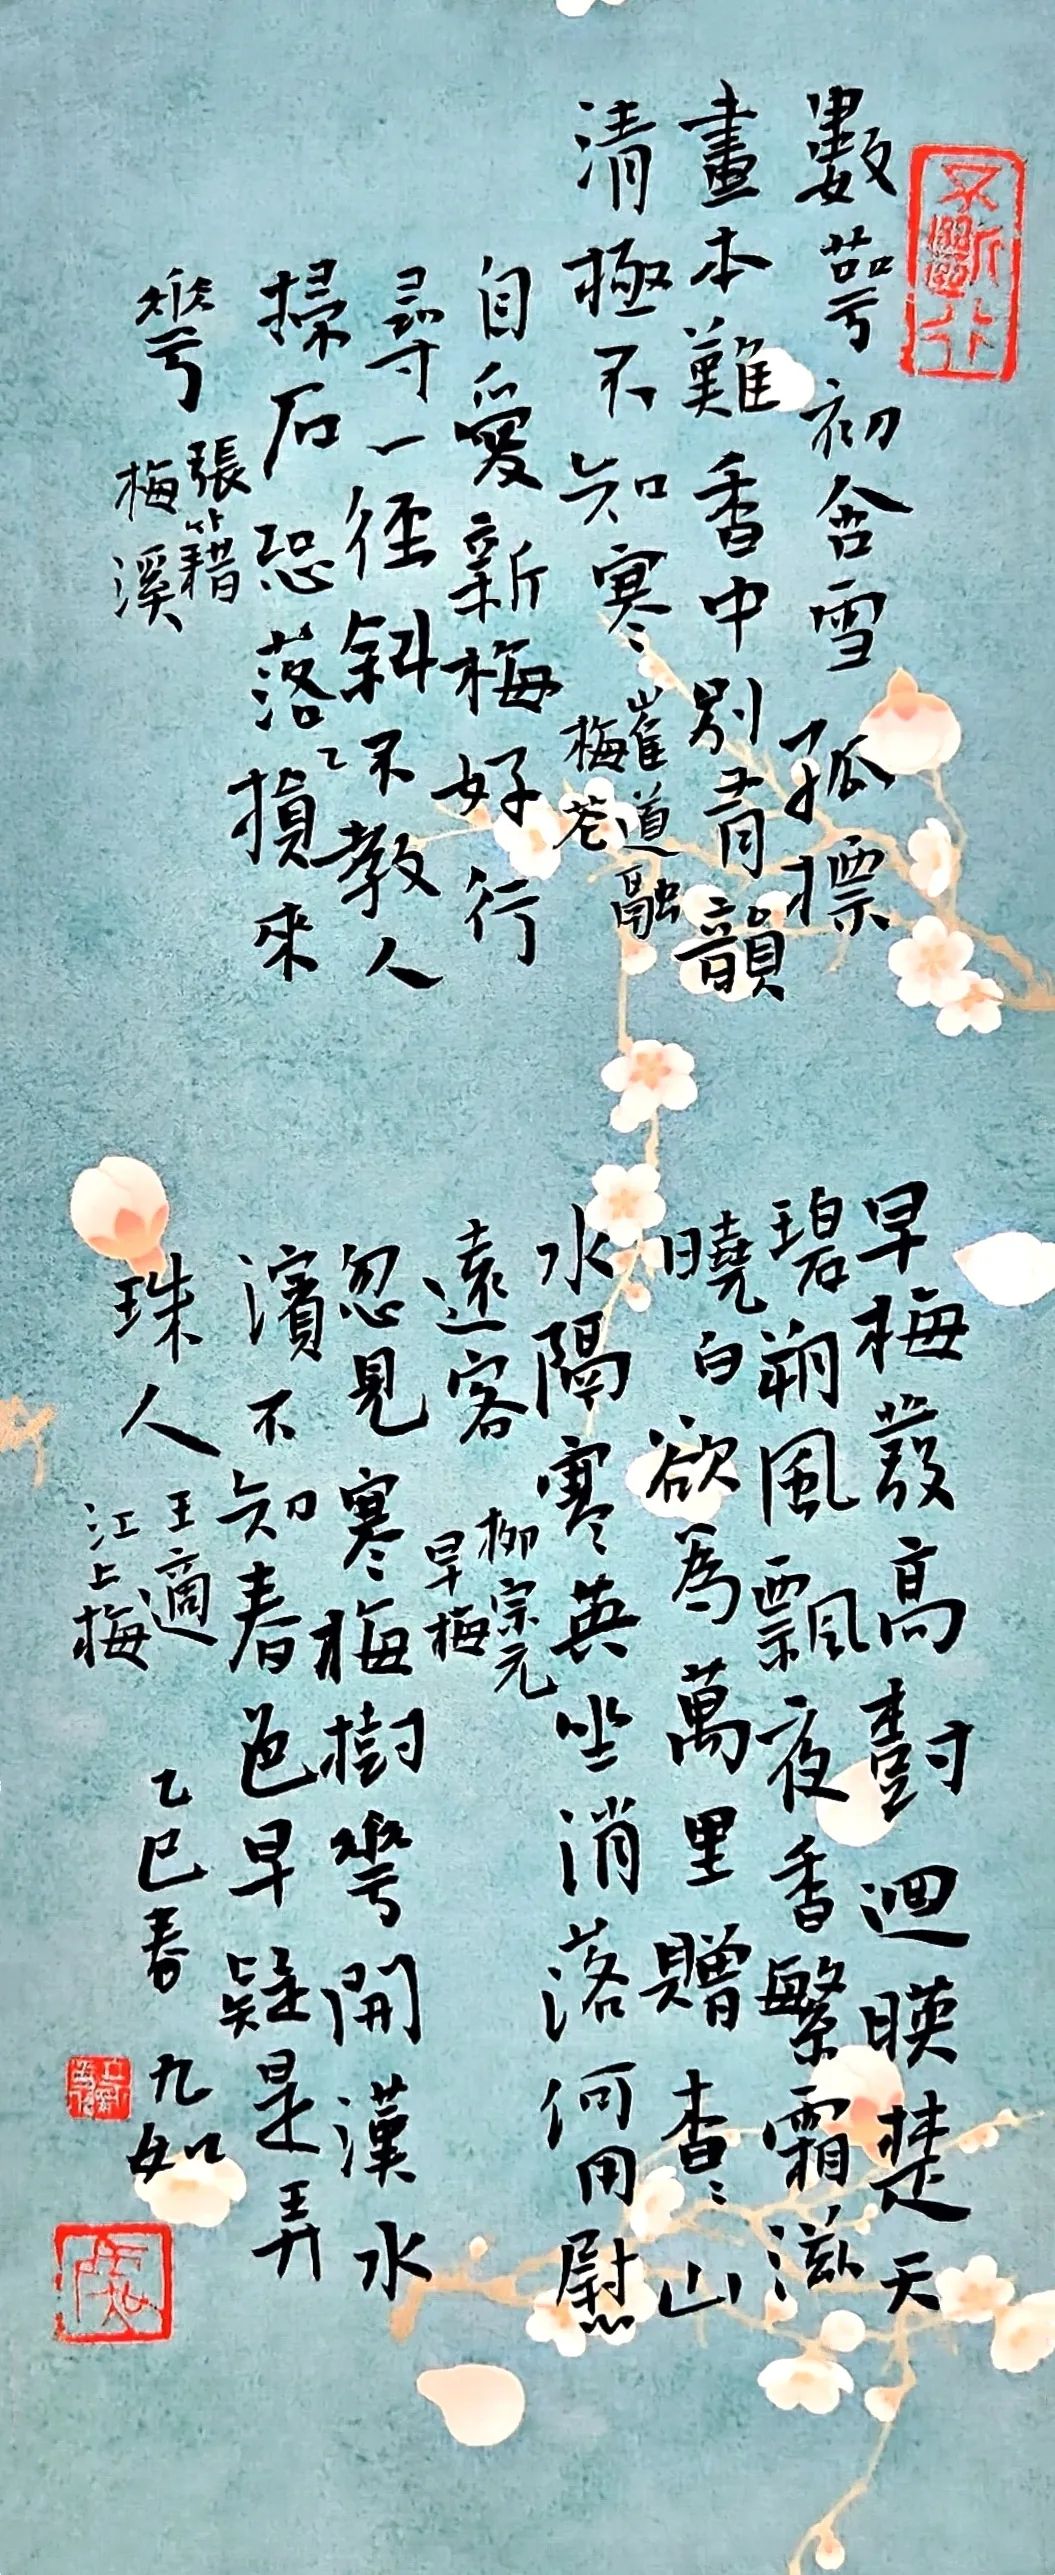 數萼初含雪孤標
畫本難香中別有韻
清極不知寒
崔道融
梅花
自愛新梅好行
尋一徑斜不教人
掃石恐落損來
𠌶
張籍
梅溪
早梅發高樹迥暎楚天
碧朔風飄夜香繁霜滋
曉白欲為萬里贈杳〻山
水隔寒英坐消落何用慰
遠客
柳宗元
早梅
忽見寒梅樹𠌶開漢水
濱不知春色早疑是弄
珠人
王適
江上梅
乙巳春 九如